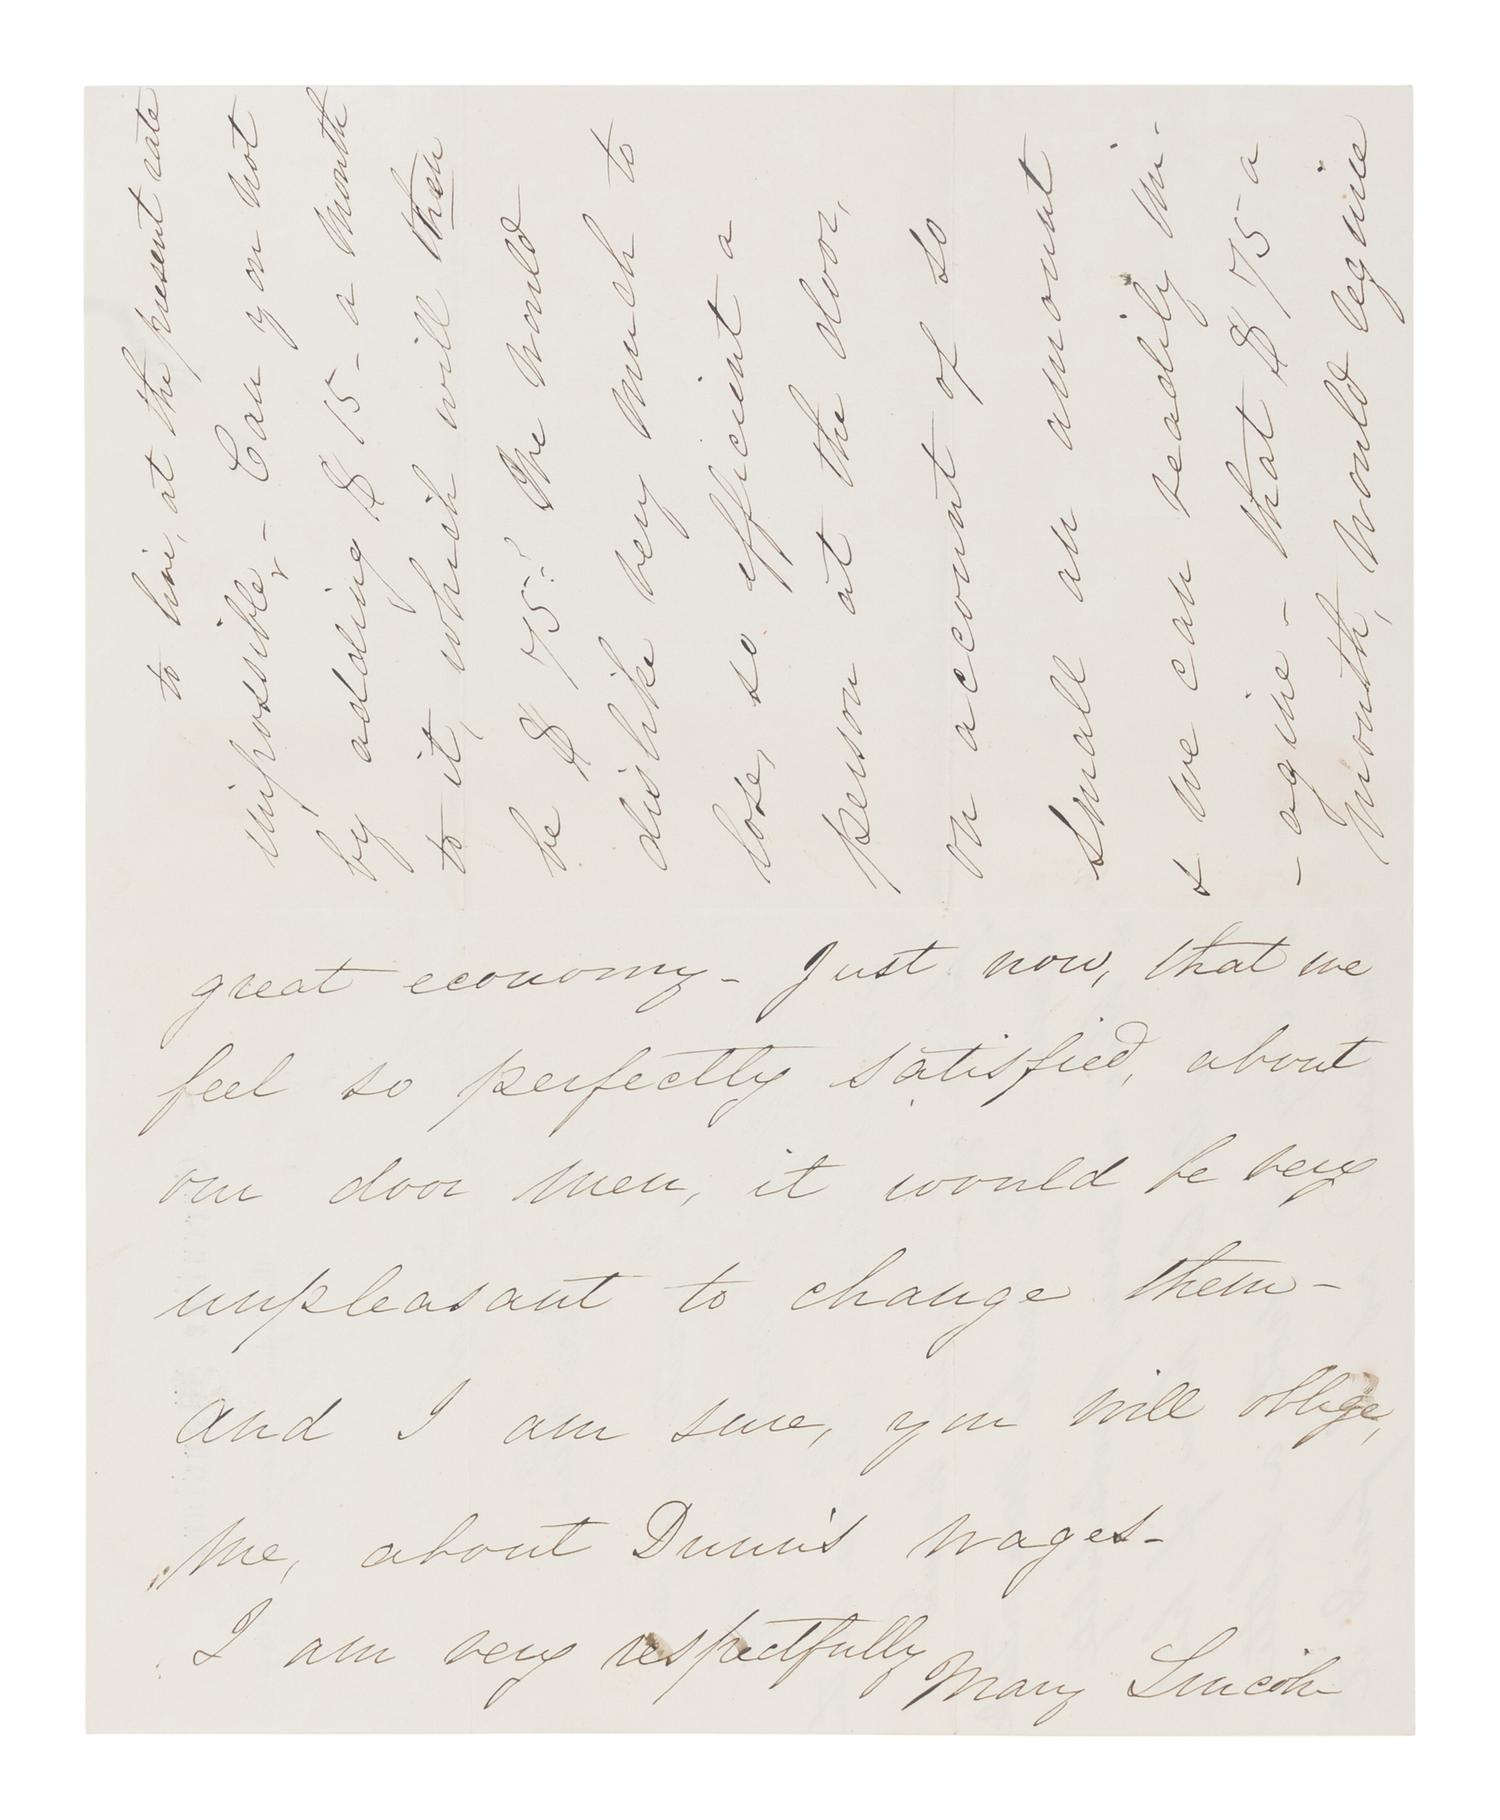 to live, at the present rate
impossible - Can you not
by adding $15 - a month
to it, which will then
be $75? We would
dislike very much to
lose, so efficient a
person at the door,
on account of so
small an amount
& we can readily im-
-agine - that $75 a
month, would require
great economy - Just now, that we
feel so perfectly satisfied, about
our door men, it would be very
unpleasant to change them -
and I am sure, you will oblige,
me, about Dunn's wages -
I am very respectfully
Mary Lincoln